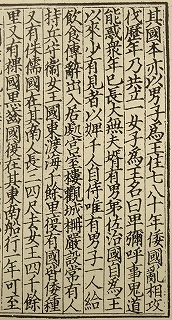 其國本亦以男子爲王住七八十年倭國亂相攻
伐歷年乃共立一女子爲王名曰卑彌呼事鬼道
能惑衆年已長大無夫婿有男弟佐治國自爲王
以來少有見者以婢千人自侍唯有男子一人給
飲食傳辭出入居處宮室樓觀城柵嚴設常有人
持兵守衛女王國東渡海千餘里復有國皆倭種
又有侏儒國在其南人長三四尺去女王四千餘
里又有裸國黑齒國復在其東南船行一年可至